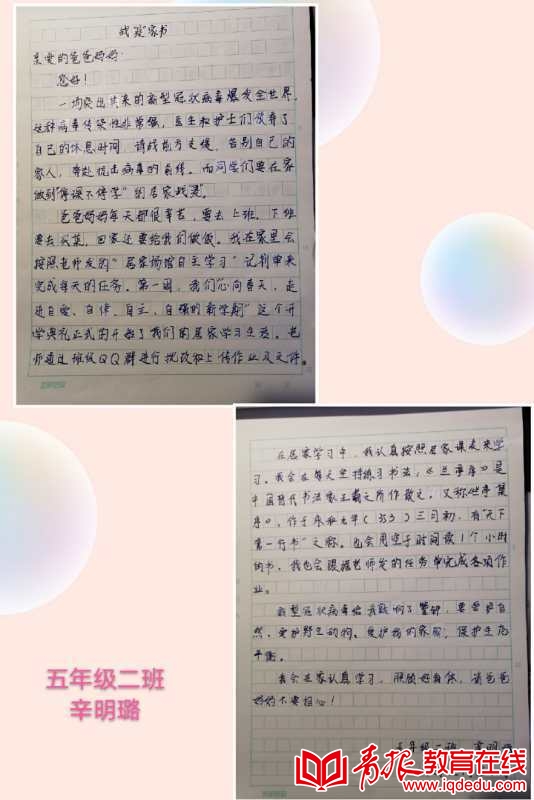 战"疫"家书
亲爱的爸爸妈妈:
您好!
一场突出其来的新型冠状病毒爆发全世界,
这种病毒传染性非常强,医生和护士们放弃了
自己的休息时间,请战能方支援,告别自己的
家人,奔赴抗击病毒的前线。而同学们要在家
做到"停课不停学"的居家战"疫"。
爸爸妈妈每天都很辛苦,要去上班,下班
要去买菜,回家还要给我们做饭。我在家里会
按照老师发的"居家场馆自主学习"计划单来
完成每天的任务。第一周,我们"心向春天,走
进自爱、自律、自主、自强的新学期"这个开
学典礼正式的开始了我们的居家学习生活。老
师通过班级QQ群进行批改和上传作业及文件。
在居家学习中,我认真按照居家课表来学
习。我会在每天坚持练习书法,《兰亭序》是
中国晋代书法家王羲之所作散文,又称《禊序
序》,作于永和九年(353)三月初,有"天下
第一行书"之称。也会用空于时间读1个小时
的书,我也会跟据老师发的任务单完成各项作
业。
新型冠状病毒给我敲响了警钟,要爱护自
然,爱护野生动物。爱护我的家园,保护生态
平衡。
我会在家认真学习,照顾好身体,请爸爸
妈妈不要担心!
五年级二班 辛明璐
五年级二班
辛明璐
青报教育在线
www.iqdedu.com